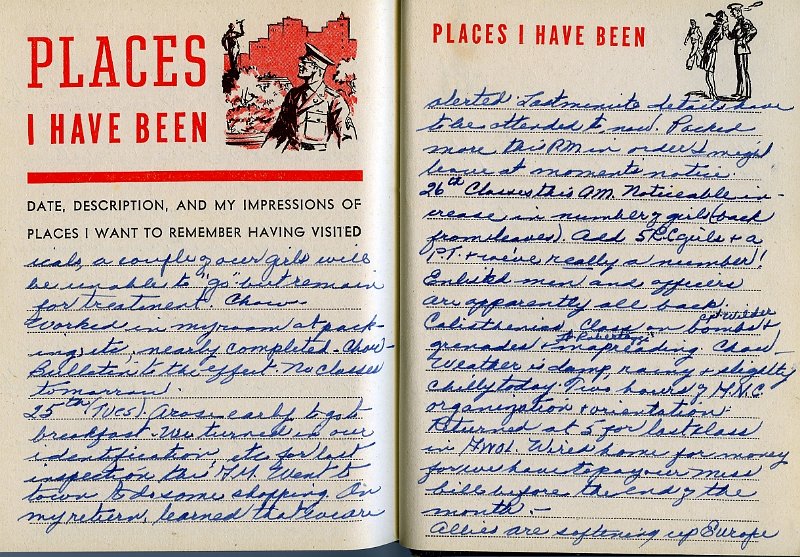 PLACES
I HAVE BEEN
DATE, DESCRIPTION, AND MY IMPRESSIONS OF
PLACES I WANT TO REMEMBER HAVING VISITED
icals, a couple of our girls will
be unable to "go" but remain
for treatment. Chow -
Worked in my room at pack-
ing, its nearly completed - Chow -
Bulletin to the effect. No Classes
tomorrow.
25th (Tues). Arose early to go to
breakfast - We turned in our
identification, etc for last
inspection this A.M. Went to
town to do some shopping. On
my return, learned that we are
PLACES I HAVE BEEN
alerted. Last minute details have
to be attended to, now. Packed
more this P.M. in order I might
leave at moments notice.
26th Classes this A.M. Noticeable in-
crease in number of girls (back
from leaves) Add 5 R.C. girls + a
P.T. + we've really a number!
Enlisted men and officers
are apparently all back.
Calisthenics, Class on bombs +
Cpt. Wilder
grenades + map reading Chow -
Lt. Roberts
Weather is damp, rainy + slightly
chilly today. Two hours of
organization + orientation.
Returned at 5 for last class
in HW01. Wired home for money
for we have to pay our mess
bills before the end of the
month. -
Allies are softening up Europe